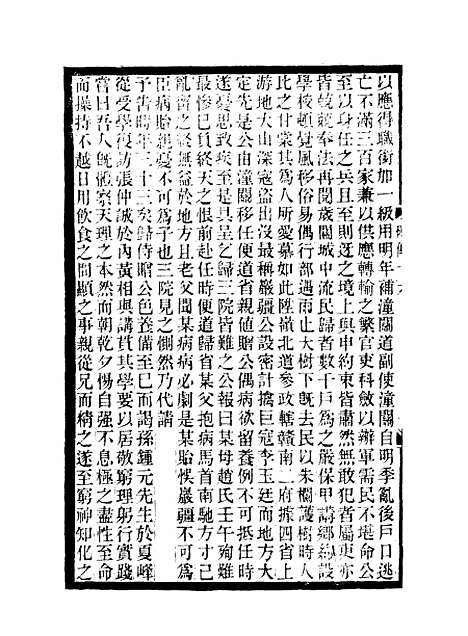 以應得職銜加一級用明年補潼關道副使潼關自明季亂後戶口逃
亡不滿三百家兼以供應轉輸之繁官吏科斂以辦軍需民不堪命公
至以身任之兵且至則迓之境上與申約束皆肅然無敢犯者屬吏亦
皆兢兢奉法再閱歲關城中流民歸者數千戶為之嚴保甲講鄉約設
學校頓覺風移俗易偶行部遇雨止大樹下旣去民以朱欄護樹時人
比之甘棠其為人所愛慕如此陞嶺北道參政轄贛南二府據四省上
游地大山深寇盜出沒最稱嚴疆公設密計擒巨寇李玉廷而地方大
定先是公由潼關移任便道省親値贈公偶病欲留養例不可抵任時
遂憂思致疾至是具呈乞歸三院皆難之公報曰某母趙氏壬午殉難
最慘已負終天之恨前赴任時便道歸省某父抱病馬首南馳方寸已
亂留之終無益於地方且老父聞某病病必劇是某貽悞嚴疆不可為
臣病貽親憂不可為子也三院見之惻然乃代請
予告時年三十三矣歸侍贈公色養備至巳而謁孫鍾元先生於夏峰
從受學復訪張仲誠於內黃相與講貫其學要以居敬窮理躬行實踐
嘗曰吾人旣體察天理之本然而朝乾夕惕自强不息極之盡性至命
而操持不越日用飲食之間顯之事親從兄而精之遂至窮神知化之